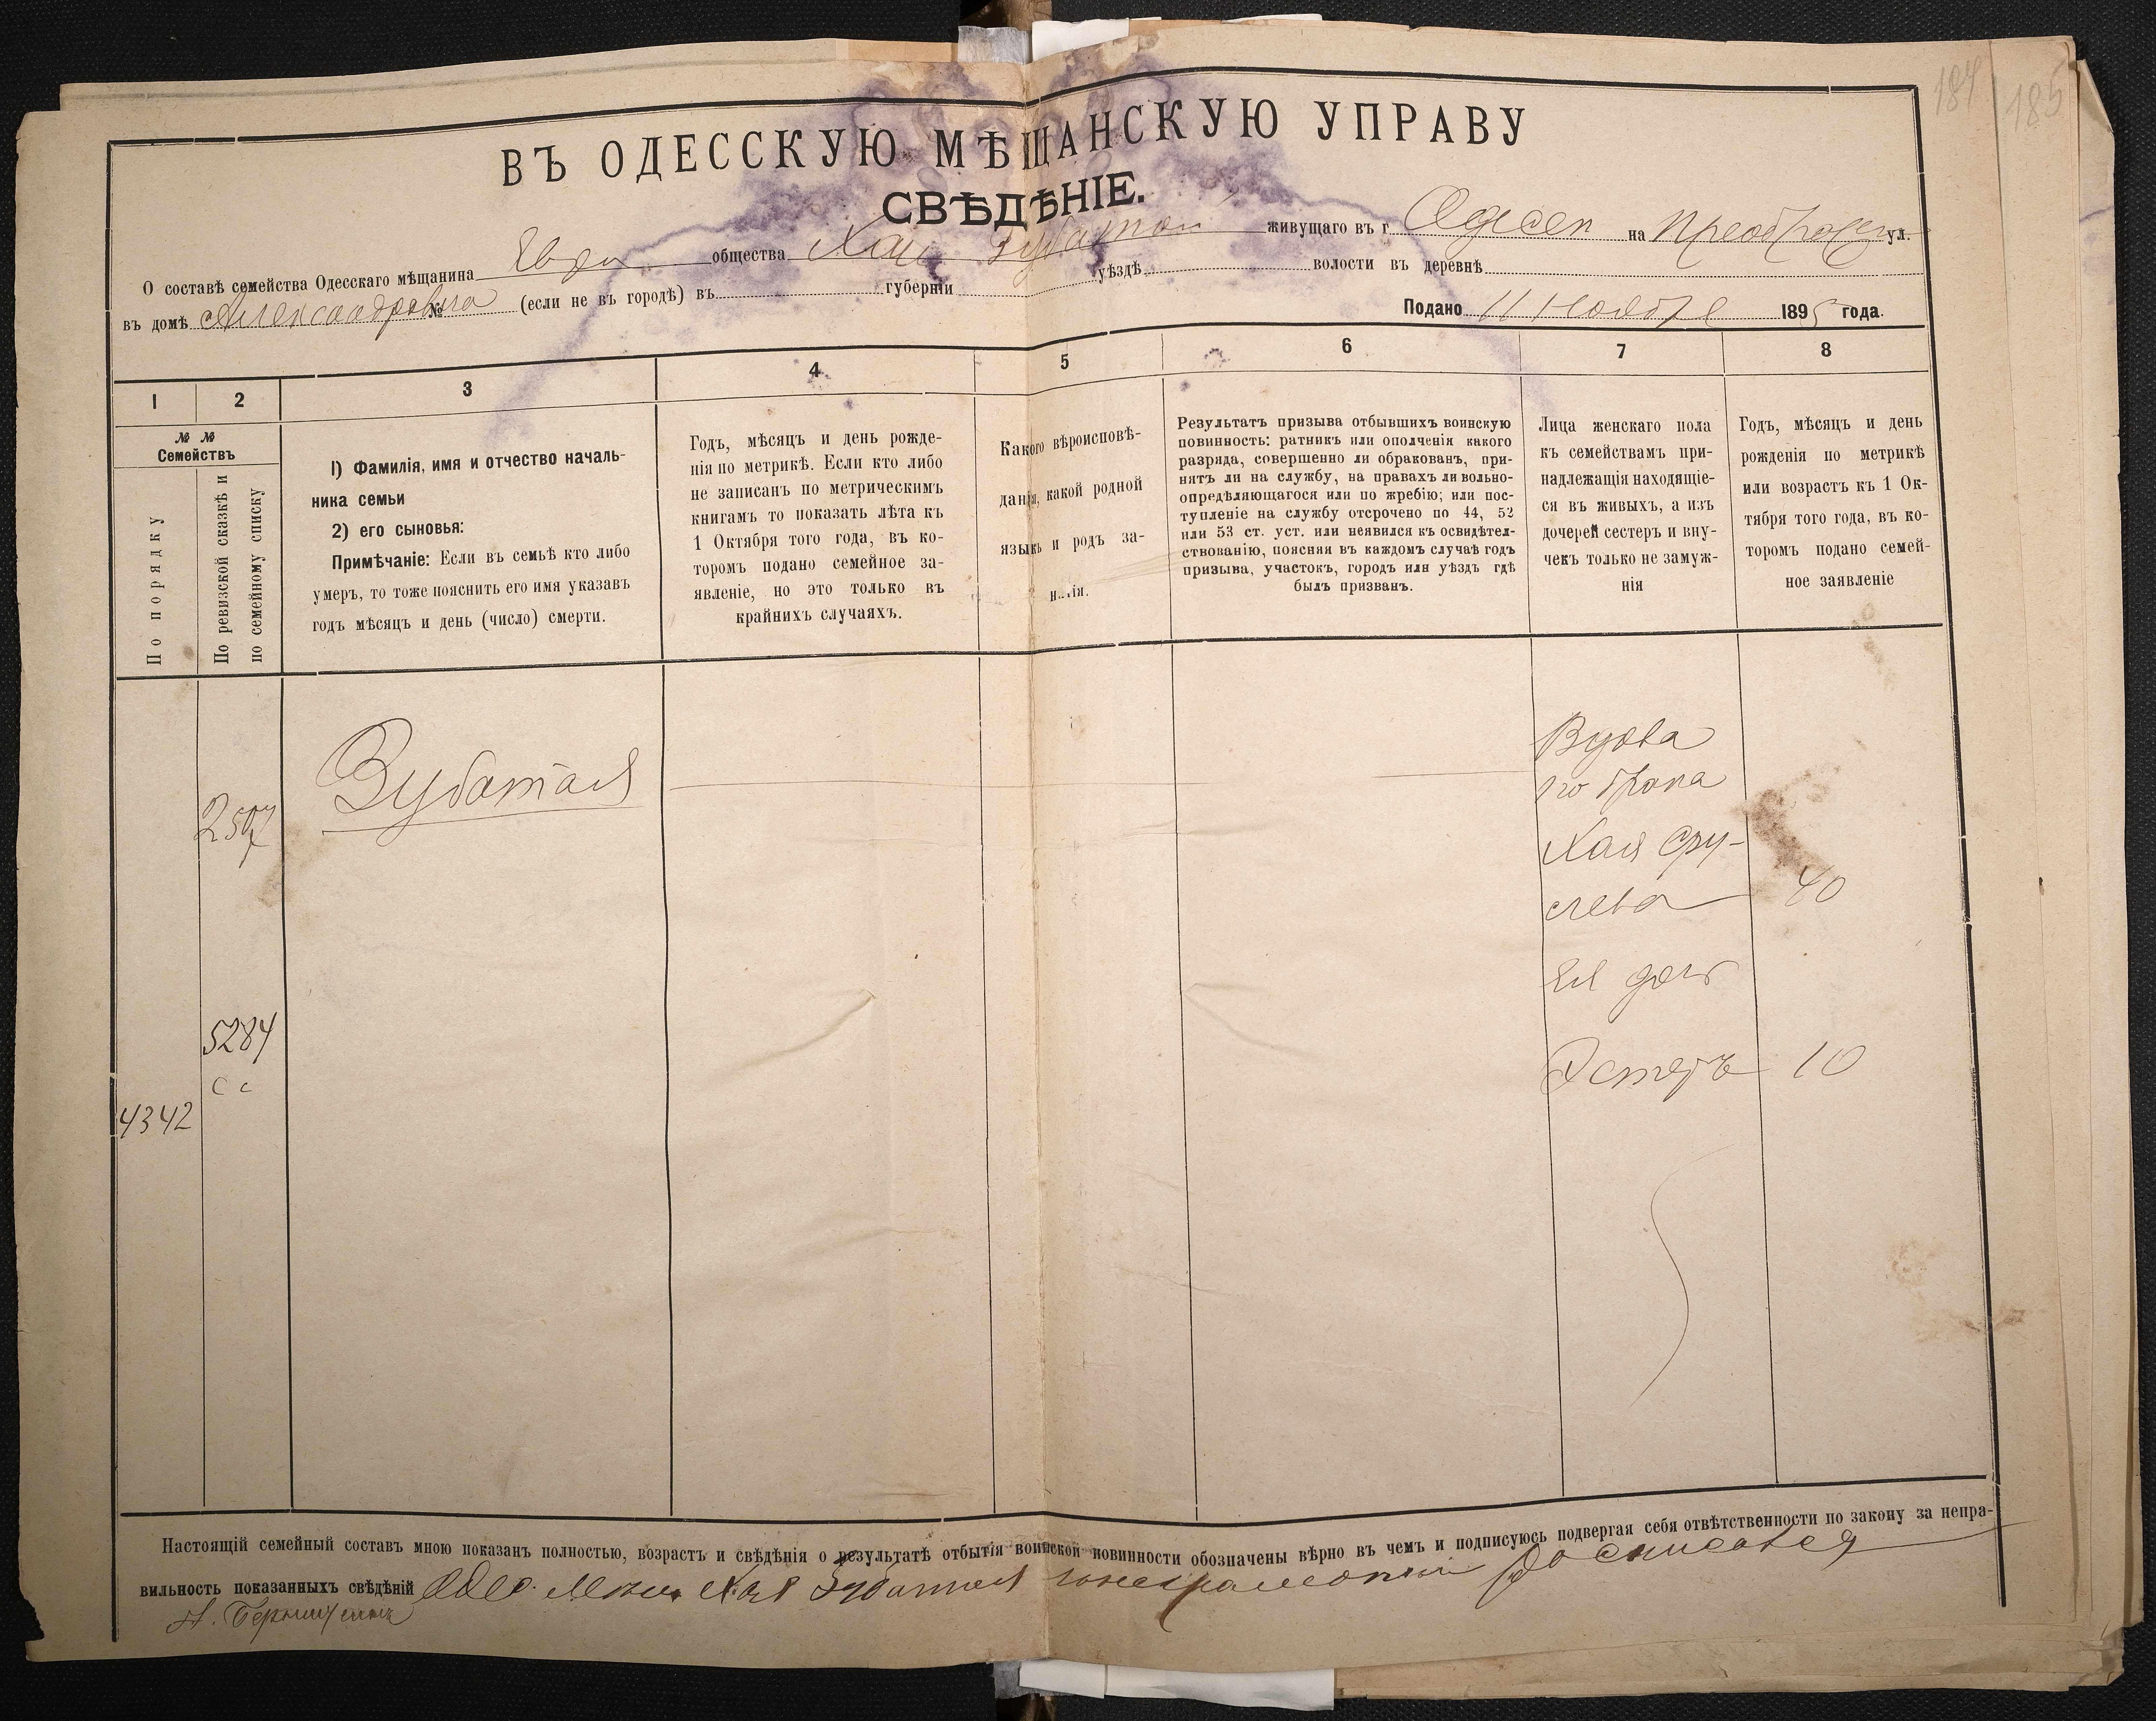 184 185
ВЪ ОДЕССКУЮ МѢЩАНСКУЮ УПРАВУ
СВѢДѢНІЕ.
О составѣ семейства Одесскаго мѣщанина Евр общества Хаи Зубатой живущаго въ г. Одесси на Преображен ул.
въ домѣ Александровича № (если не въ городѣ) въ губерніи уѣздѣ волости въ деревнѣ
Подано 11 Ноября 1895 года.
1 2 3 4 5 6 7 8
№ №
Семействъ
По порядку
По ревизской сказкѣ и
по семейному списку
1) Фамилія, имя и отчество началь-
ника семьи
2) его сыновья:
Примѣчаніе: Если въ семьѣ кто либо
умеръ, то тоже пояснить его имя указавъ
годъ мѣсяцъ и день (число) смерти.
Годъ, мѣсяцъ и день рожде-
нія по метрикѣ. Если кто либо
не записанъ по метрическимъ
книгамъ то показать лѣта къ
1 Октября того года, въ ко-
торомъ подано семейное за-
явленіе, но это только въ
крайнихъ случаяхъ.
Какого вѣроисповѣ-
данія, какой родной
языкъ и родъ за-
нятія.
Результатъ призыва отбывшихъ воинскую
повинность: ратникъ или ополченія какого
разряда, совершенно ли обракованъ, при-
нятъ ли на службу, на правахъ ли вольно-
опредѣляющагося или по жребію; или пос-
тупленіе на службу отсрочено по 44, 52
или 53 ст. уст. или неявился къ освидѣтел-
ствованію, поясняя въ каждомъ случаѣ годъ
призыва, участокъ, городъ или уѣздъ гдѣ
былъ призванъ.
Лица женскаго пола
къ семействамъ при-
надлежащія находящіе-
ся въ живыхъ, а изъ
дочерей сестеръ и вну-
чекъ только не замуж-
нія
Годъ, мѣсяцъ и день
рожденія по метрикѣ
или возрастъ къ 1 Ок-
тября того года, въ ко-
торомъ подано семей-
ное заявленіе
2507
Зубатая
Вдова
1го брака
Хая Сру-
лева 40
Ея дочь
5284
с с
Эстеръ 10
4342
Настоящій семейный составъ мною показанъ полностью, возрастъ и свѣдѣнія о результатѣ отбытія воинской повинности обозначены вѣрно въ чемъ и подписуюсь подвергая себя отвѣтственности по закону за непра-
вильность показанныхъ свѣдѣній Одес. Мѣщ. Хая Зубатая неграмотный